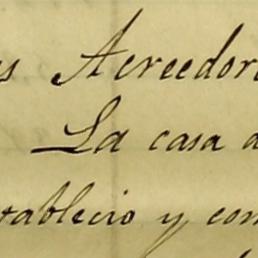 s Acreedor
La casa d
tablecio y con